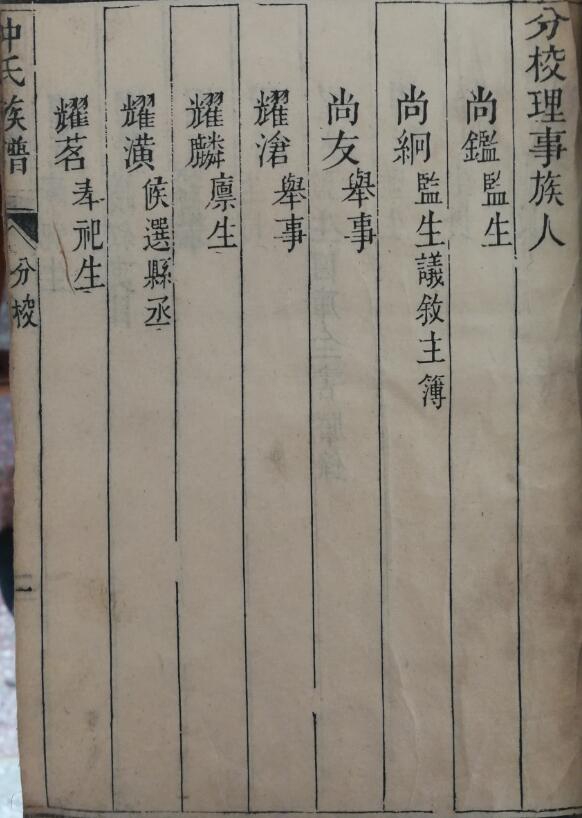 分校理事族人
尚鑑 監生
尚絅 監生議敘主簿
尚友 舉事
耀滄 舉事
耀麟 廪生
耀潢 候選縣丞
耀茗 奉祀生
仲氏族譜
分校